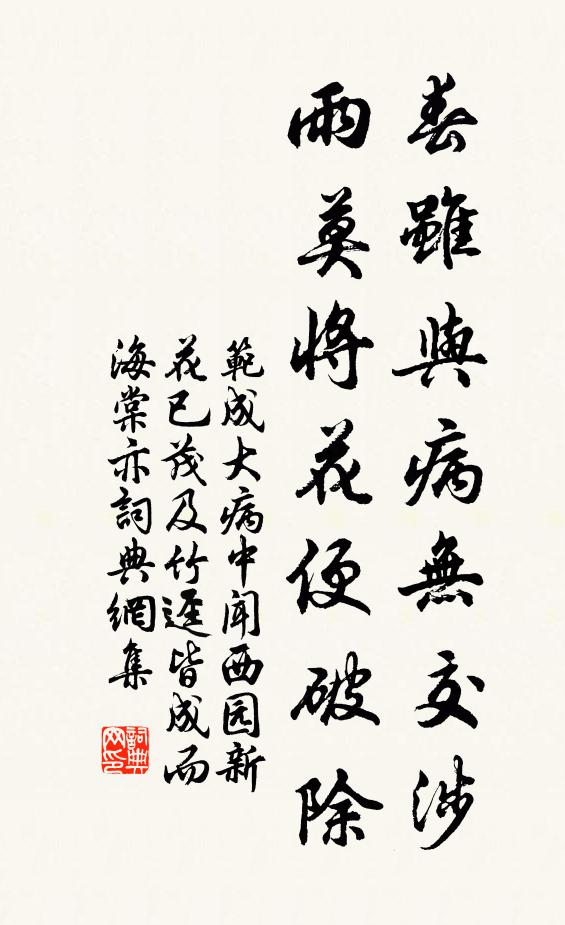 春雖與病無交涉
雨莫將花便破除
範成大病中闻西园新
花已茂及竹迳皆成而
海棠亦詞典網集
詞典
网印